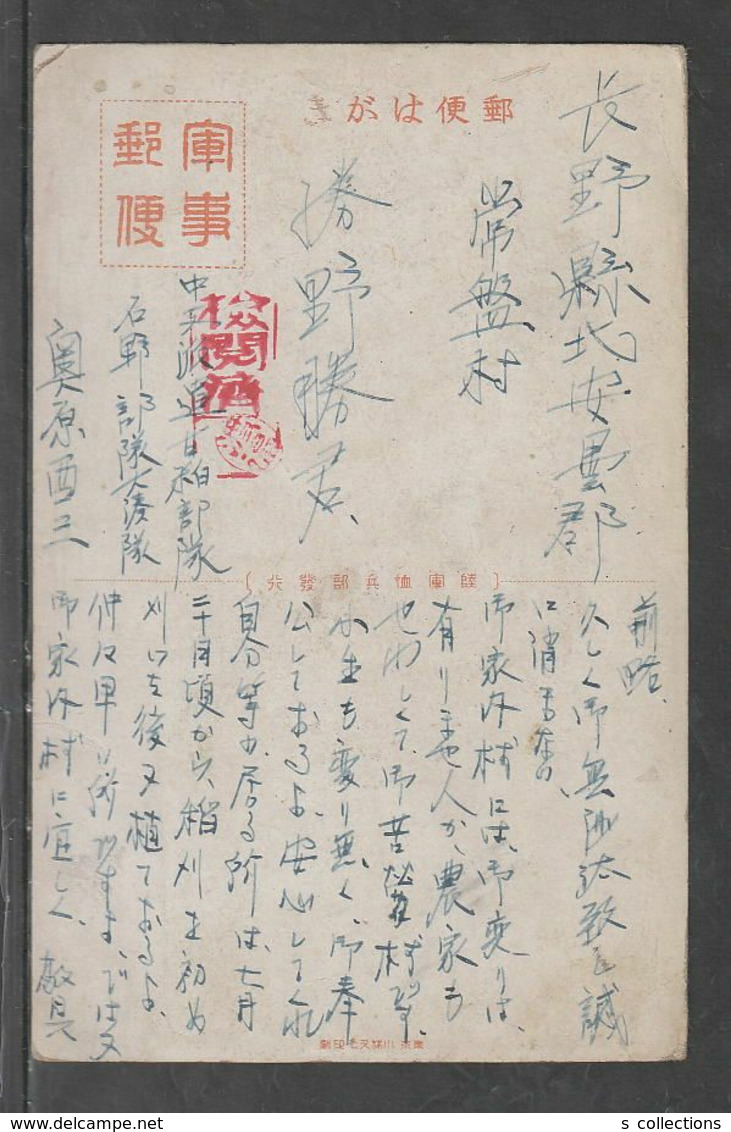 郵便はがき
軍事
郵便
長野縣北安曇郡
常盤村
勝野勝君、
検閲済
中支派遣甘粕部隊
石野部隊大湊隊
奥原酉三
〔陸軍恤兵部發行〕
前略、
久しく御無沙汰致し誠
に消まない
御家内様には、御変りは、
有りませ人か、農家も
せわしくて、御苦労様です。
小生も変り無く、御奉
公しておるよ、安心してくれ
自分等の居る所は、七月
二十日頃から、稲刈を初め
刈った後又植ておるよ、
仲々早い所ですよ、では又
御家内様に宜しく、敬具
s collections